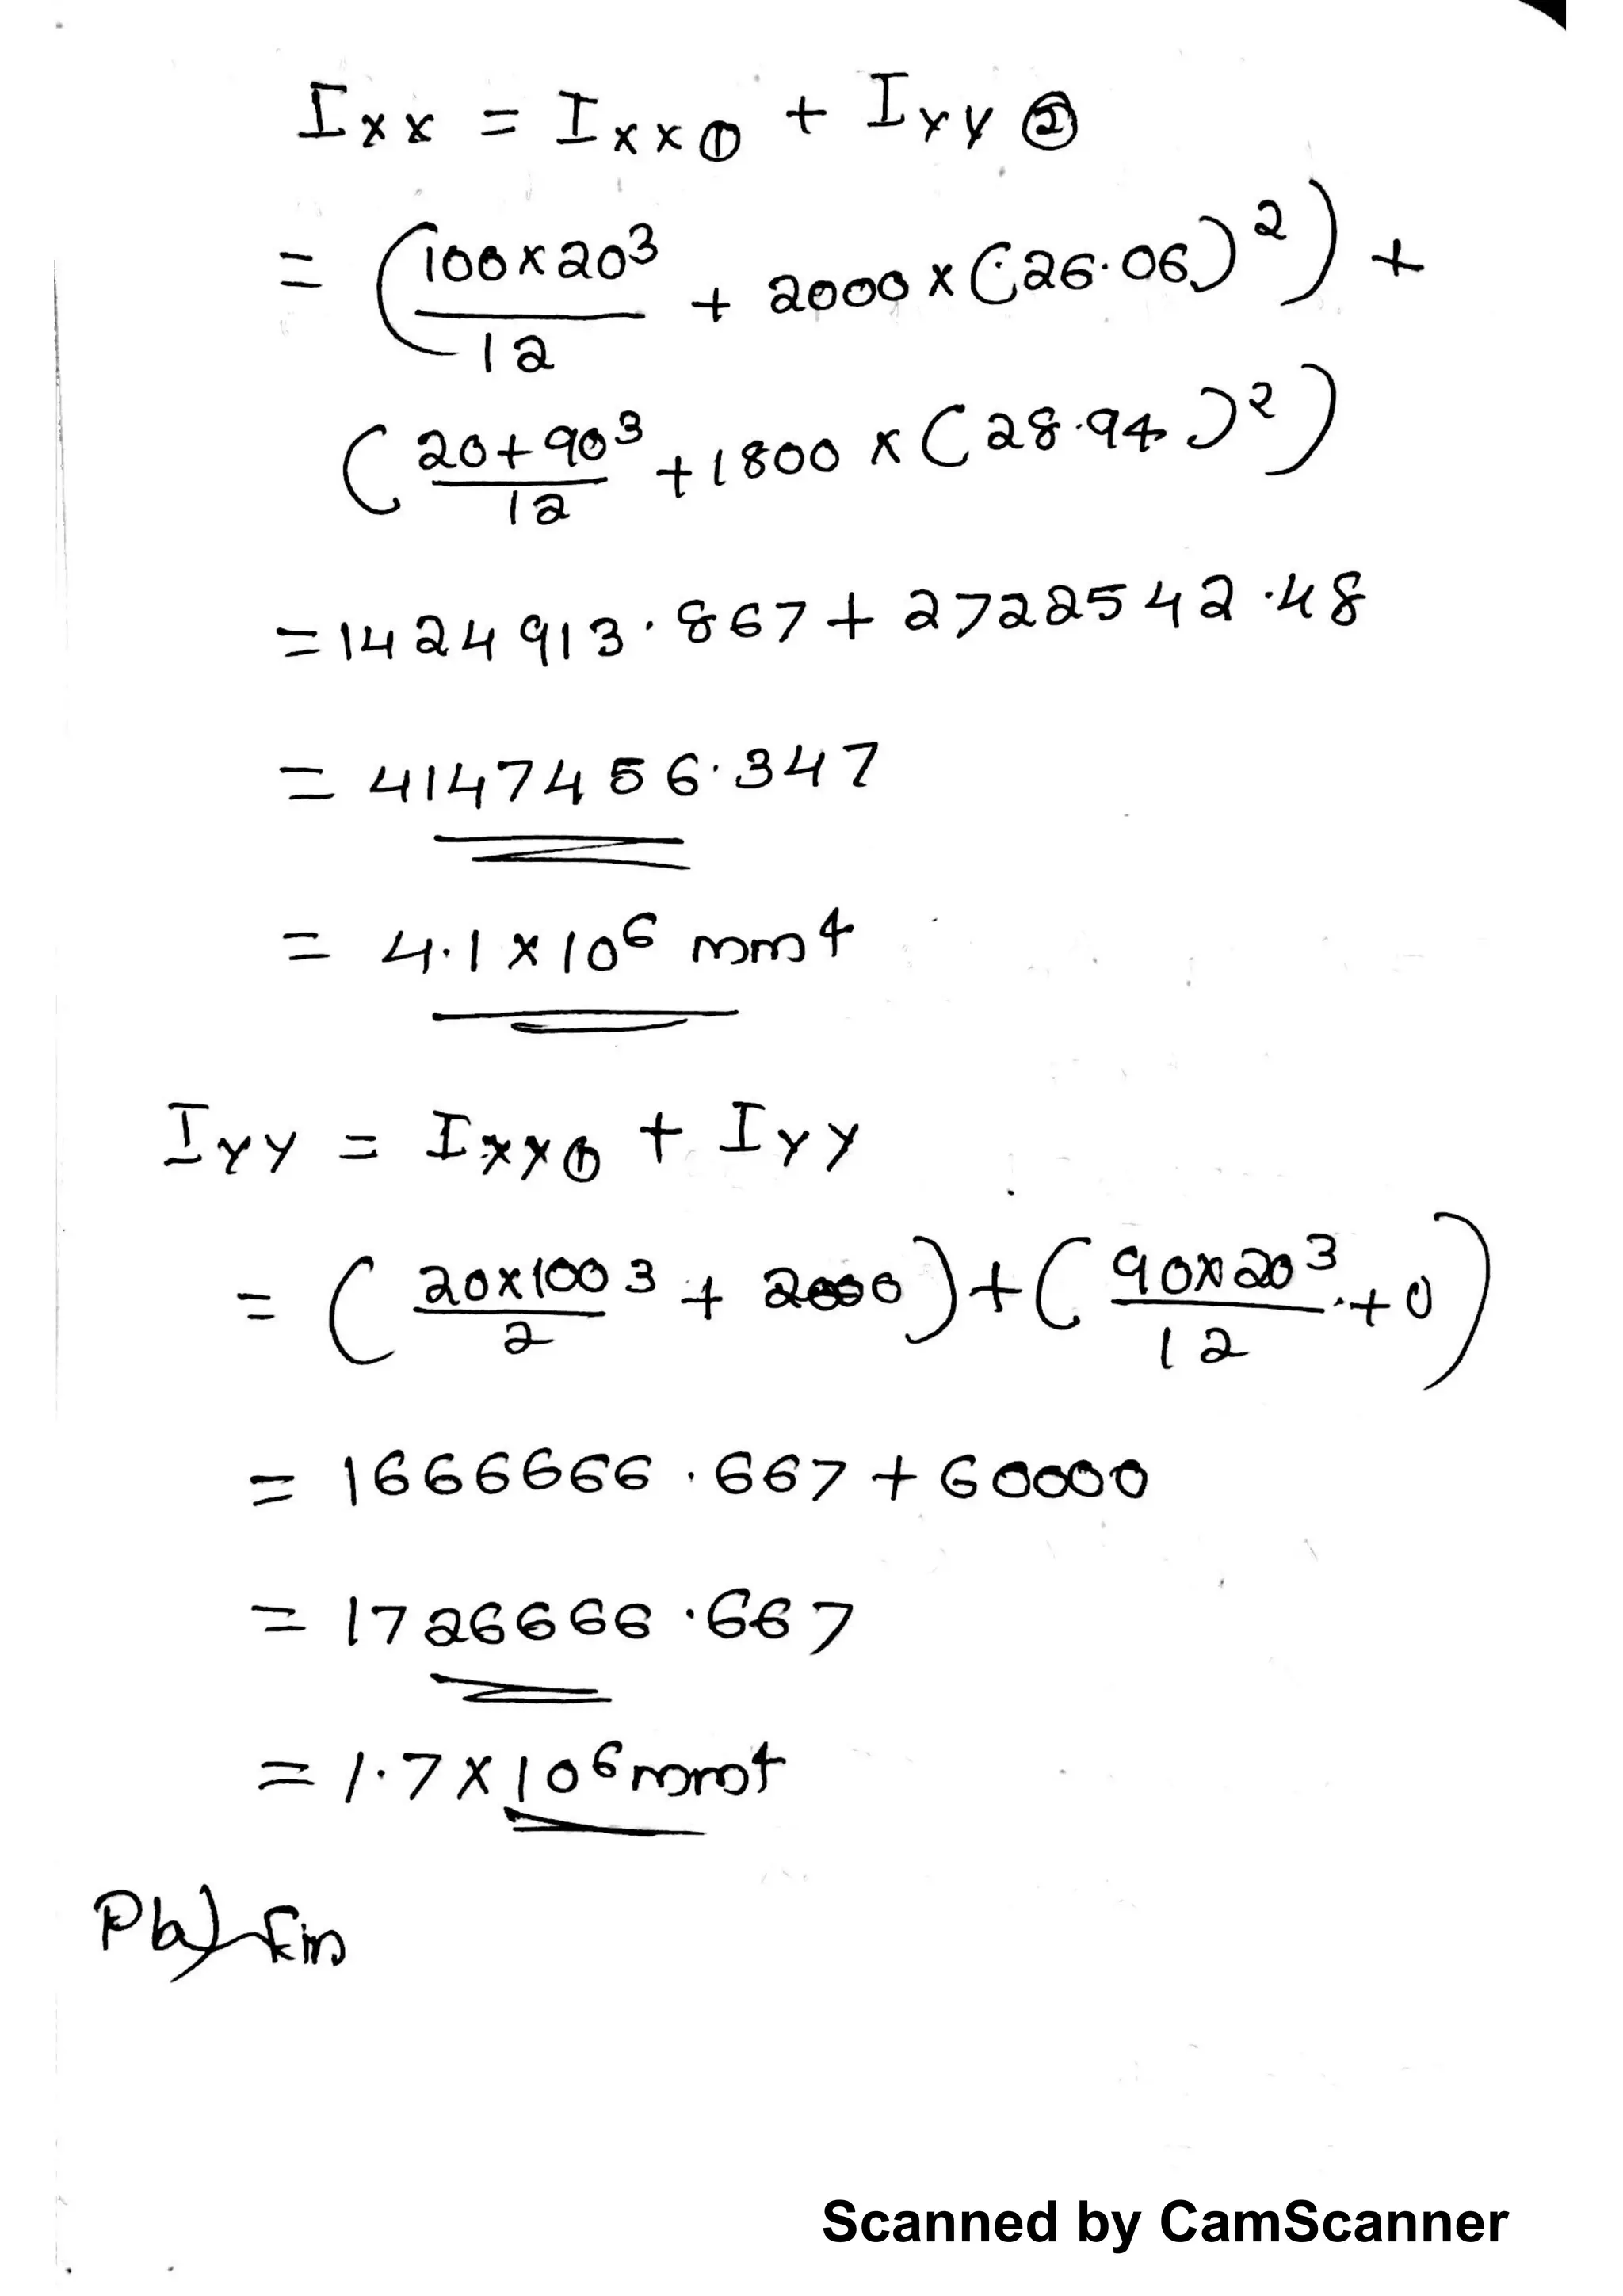 Ixx = Ixx① + Iyy②
= (100×20³/12 + 2000×(26.06)²) +
(20+90³/12 + 1800×(28.94)²)
= 1424913.867 + 2722542.48
= 4147456.347
= 4.1×10⁶ mm⁴
Iyy = Ixx① + Iyy
= (20×100³/2 + 2000) + (90×20³/12 + 0)
= 1666666.667 + 60000
= 1726666.667
= 1.7×10⁶ mm⁴
Scanned by CamScanner